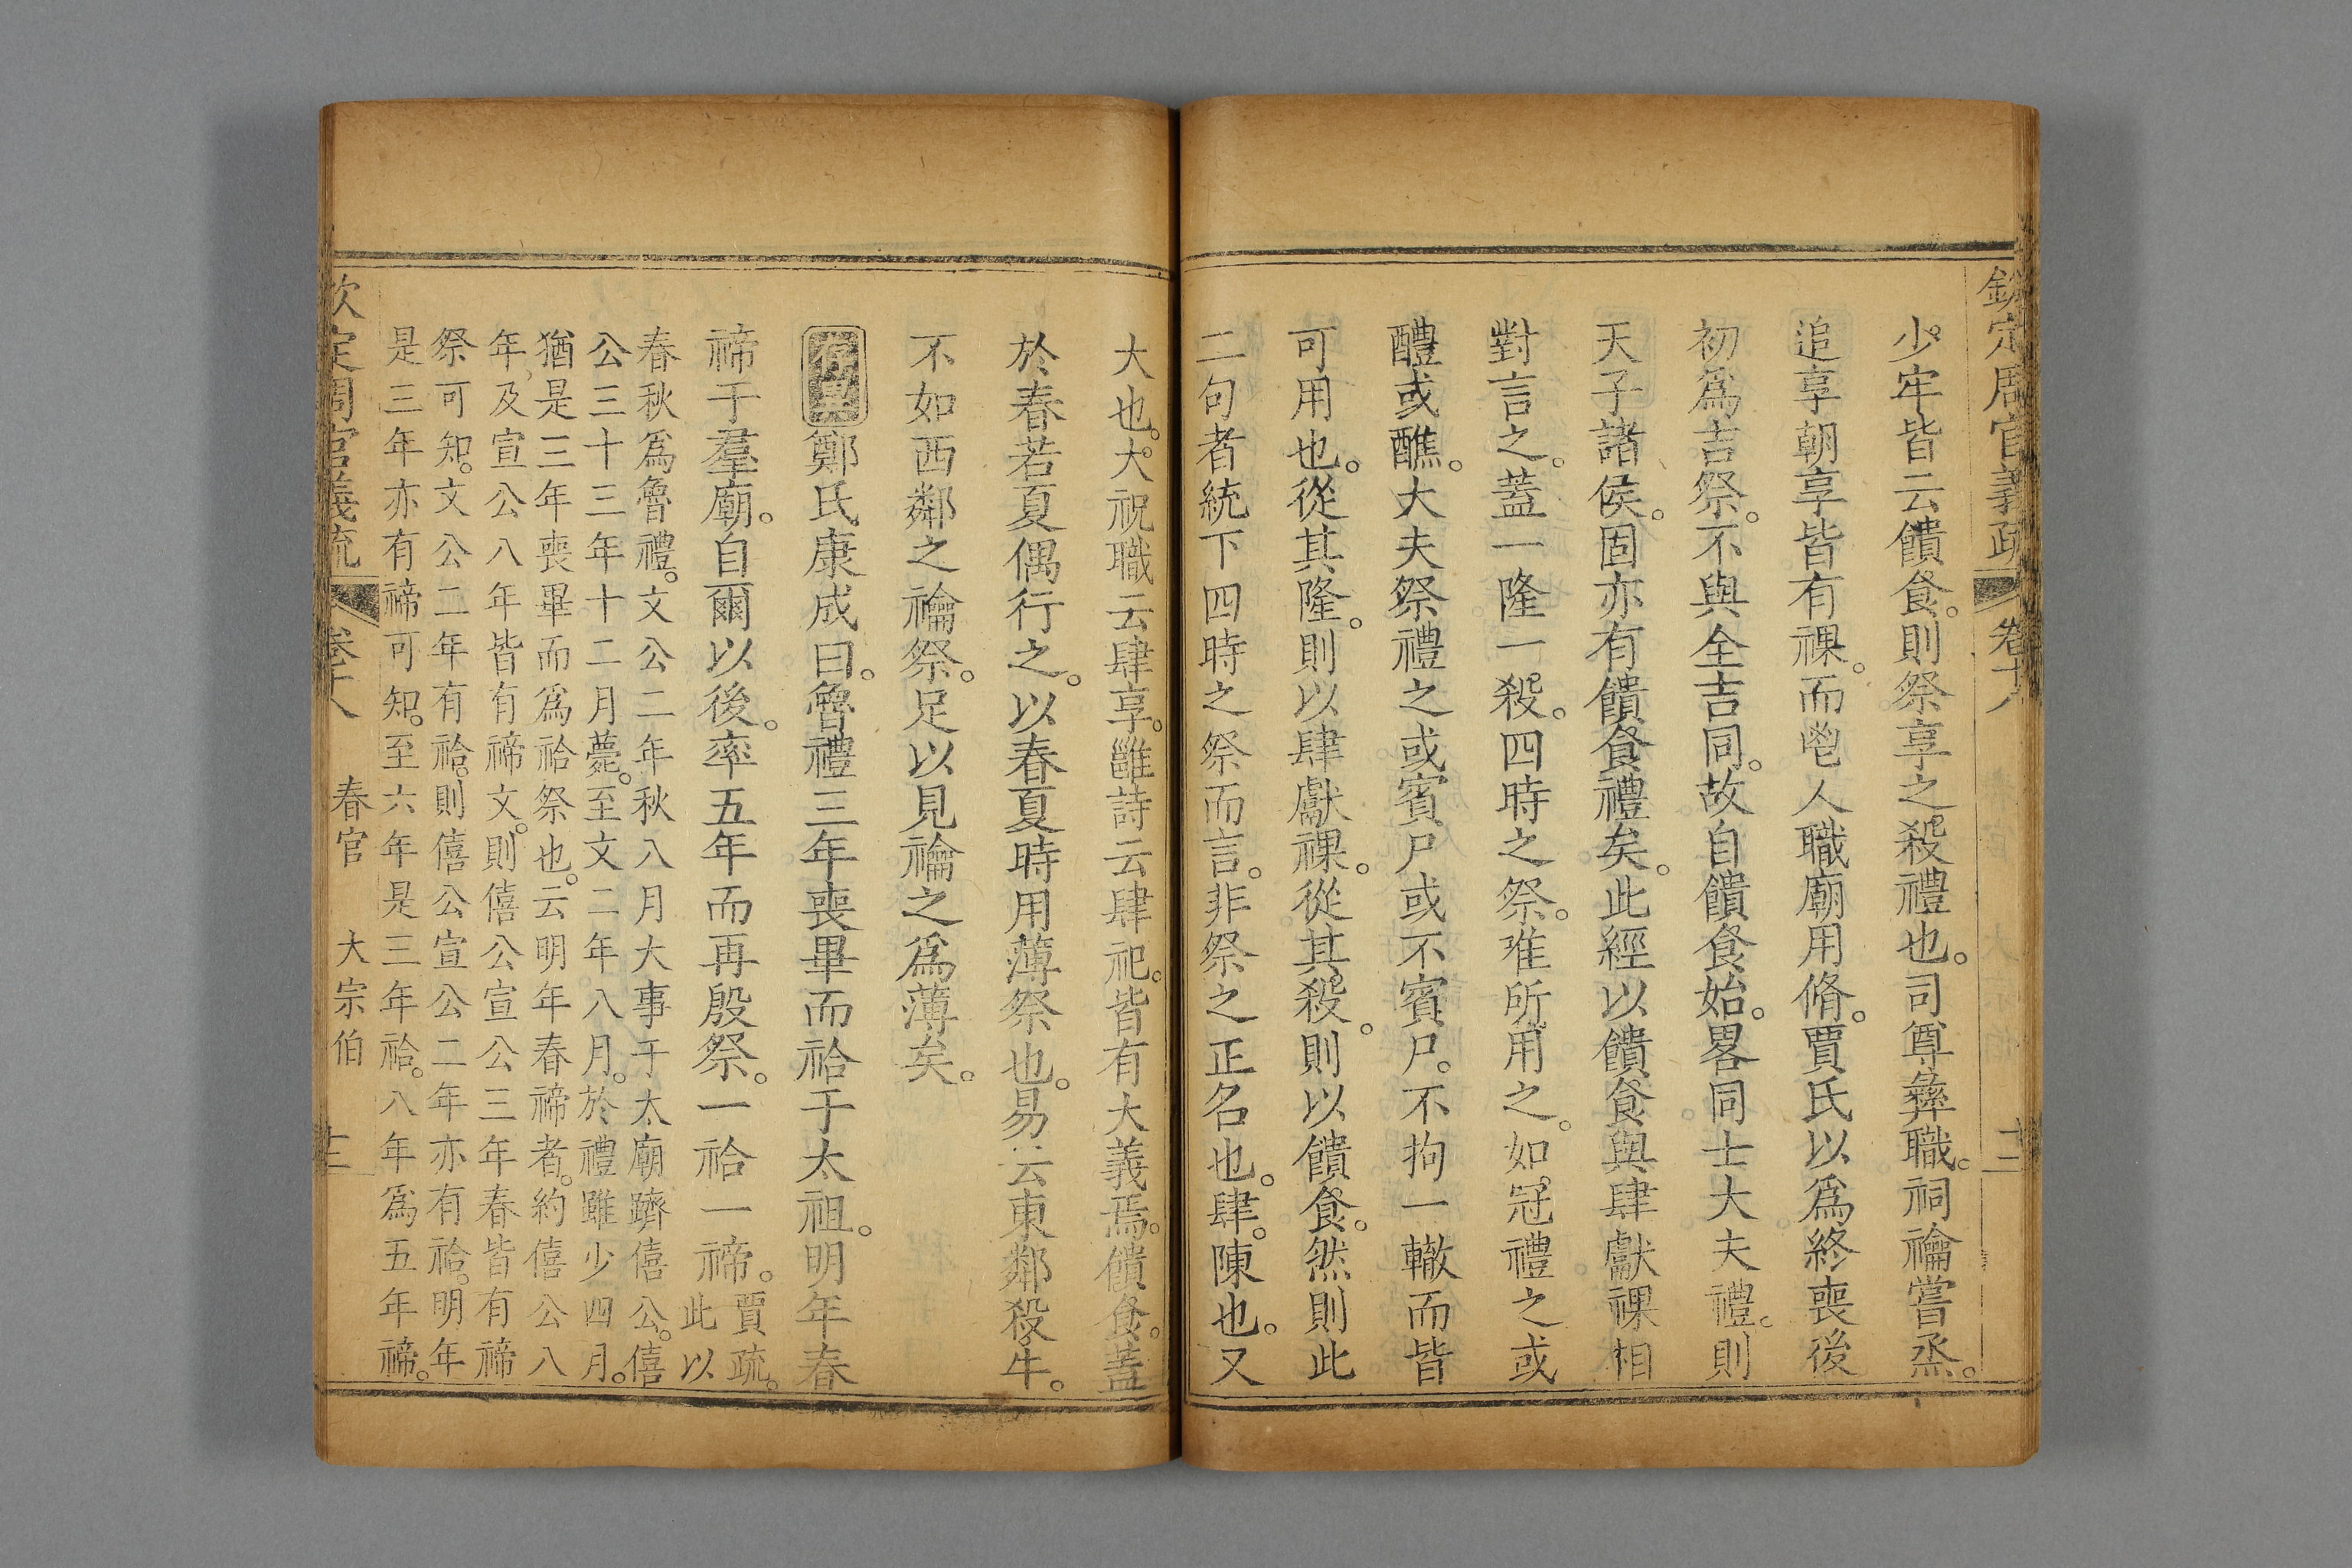 欽定周官義疏 卷十八 十二
少牢皆云饋食。則祭享之殺禮也。司尊彝職。祠禴嘗烝。
追享朝享皆有祼。而鬯人職廟用脩。賈氏以爲終喪後
初爲吉祭。不與全吉同。故自饋食始。畧同士大夫禮。則
天子諸侯。固亦有饋食禮矣。此經以饋食與肆獻祼相
對言之。蓋一隆一殺。四時之祭。唯所用之。如冠禮之或
醴或醮。大夫祭禮之或賓尸或不賓尸。不拘一轍而皆
可用也。從其隆。則以肆獻祼。從其殺。則以饋食。然則此
二句者統下四時之祭而言。非祭之正名也。肆。陳也。又
大也。大祝職云肆享。雝詩云肆祀。皆有大義焉。饋食。蓋
於春若夏偶行之。以春夏時用薄祭也。易云東鄰殺牛。
不如西鄰之禴祭。足以見禴之爲薄矣。
存異鄭氏康成曰。魯禮三年喪畢而祫于太祖。明年春
禘于羣廟。自爾以後。率五年而再殷祭。一祫一禘。賈疏。此以
春秋爲魯禮。文公二年秋八月大事于太廟躋僖公。僖
公三十三年十二月薨。至文二年八月。於禮雖少四月。
猶是三年喪畢而爲祫祭也。云明年春禘者。約僖公八
年及宣公八年皆有禘文。則僖公宣公三年春皆有禘
祭可知。文公二年有祫。則僖公宣公二年亦有祫。明年
是三年亦有禘可知。至六年是三年祫。八年爲五年禘。
欽定周官義疏 卷十八 春官 大宗伯 十二